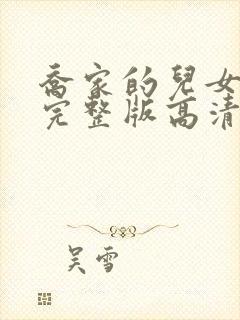 喬家的兒女
完整版高清
吴雪